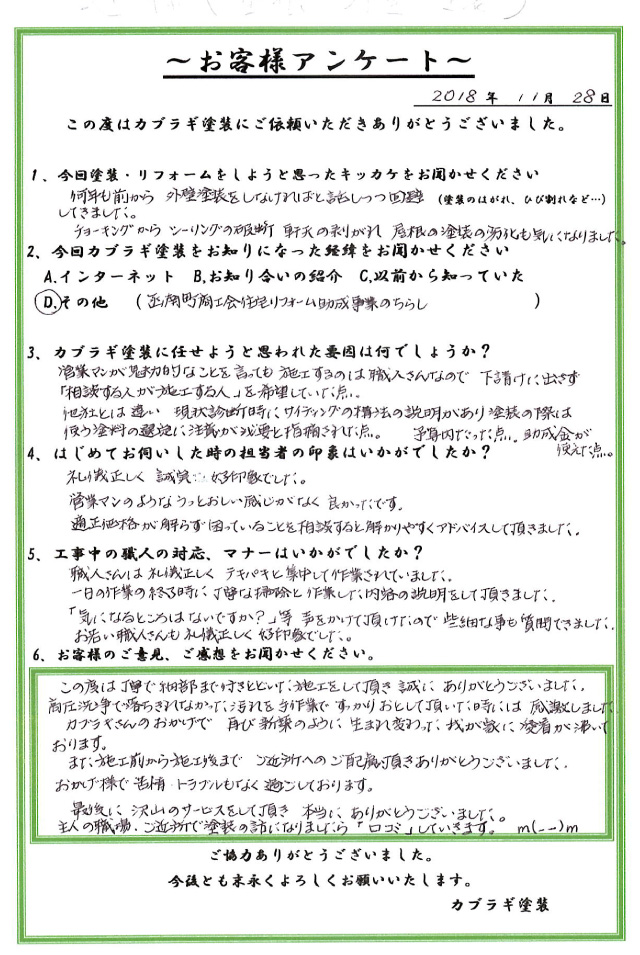 ～お客様アンケート～
2018年 11月 28日
この度はカブラギ塗装にご依頼いただきありがとうございました。
1、今回塗装・リフォームをしようと思ったキッカケをお聞かせください
何年も前から 外壁塗装をしなければと話しつつ回避 (塗装のはがれ、ひび割れなど…)
してきました。
チョーキングから シーリングの破断 軒天の剥がれ 屋根の塗装の劣化も気になりました。
2、今回カブラギ塗装をお知りになった経緯をお聞かせください
A.インターネット B.お知り合いの紹介 C.以前から知っていた
D.その他 (函南町商工会住宅リフォーム助成事業のちらし )
3、カブラギ塗装に任せようと思われた要因は何でしょうか？
営業マンが魅力的なことを言っても施工するのは職人さんなので 下請けに出さず
「相談する人が施工する人」を希望していた点。
他社とは違い 現状診断時にサイディングの構法の説明があり塗装の際は
使う塗料の選定に注意が必要と指摘された点。 予算内だった点。助成金が
使えた点。
4、はじめてお伺いした時の担当者の印象はいかがでしたか？
礼儀正しく 誠実で好印象でした。
営業マンのようなうっとおしい感じがなく 良かったです。
適正価格が解らず困っていることを相談すると解かりやすくアドバイスして頂きました。
5、工事中の職人の対応、マナーはいかがでしたか？
職人さんは礼儀正しく テキパキと集中して作業されていました。
一日の作業の終る時に 丁寧な掃除と作業した内容の説明をして頂きました。
「気になるところはないですか？」等 声をかけて頂けたので 些細な事も質問できました。
お若い職人さんも礼儀正しく好印象でした。
6、お客様のご意見、ご感想をお聞かせください。
この度は丁寧で細部まで行きとどいた施工をして頂き 誠に ありがとうございました。
高圧洗浄で落ちきれなかった汚れを手作業で すっかりおとして頂いた時には 感激しました
カブラギさんのおかげで 再び新築のように 生まれ変わった 我が家に 愛着が沸いて
おります。
また、施工前から施工後まで ご近所へのご配慮頂きありがとうございました。
おかげ様で苦情・トラブルもなく過ごしております。
最後に 沢山のサービスをして頂き 本当に ありがとうございました。
主人の職場・ご近所で塗装の話になりましたら「口コミ」していきます。 m(--)m
ご協力ありがとうございました。
今後とも末永くよろしくお願いいたします。
カブラギ塗装